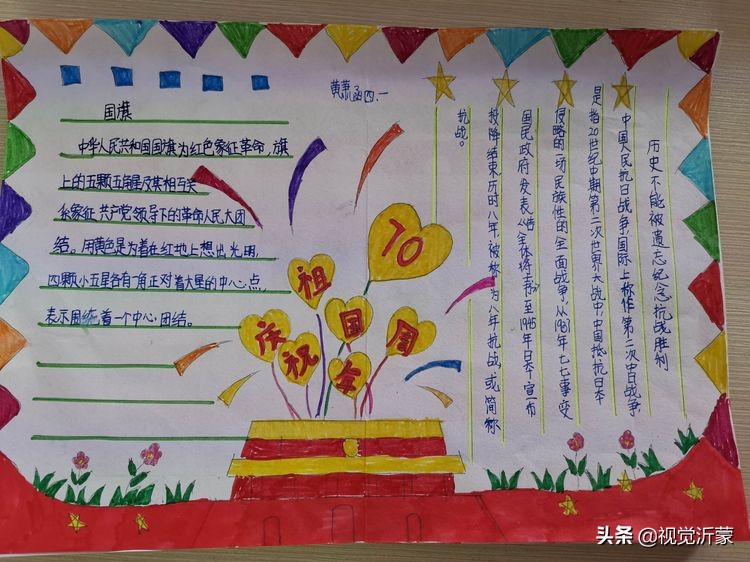 黄萧函四.一
国旗
中华人民共和国国旗为红色象征革命,旗
上的五颗五角星及其相互关
系象征共产党领导下的革命人民大团
结。用黄色是为着在红地上想出光明,
四颗小五星各有一角正对着大星的中心点,
表示周绕着一个中心团结。
70
祖
国
周
庆
祝
年
历史不能被遗忘纪念抗战胜利
中国人民抗日战争,国际上称作第二次中日战争
是指20世纪中期第二次世界大战中,中国抵抗日本
侵略的一场民族性的全面战争,从1931年七七事变
国民政府发表《告全体将士书》至1945年日本宣布
投降结束历时八年,被称为八年抗战,或简称
抗战。
头条 @视觉沂蒙